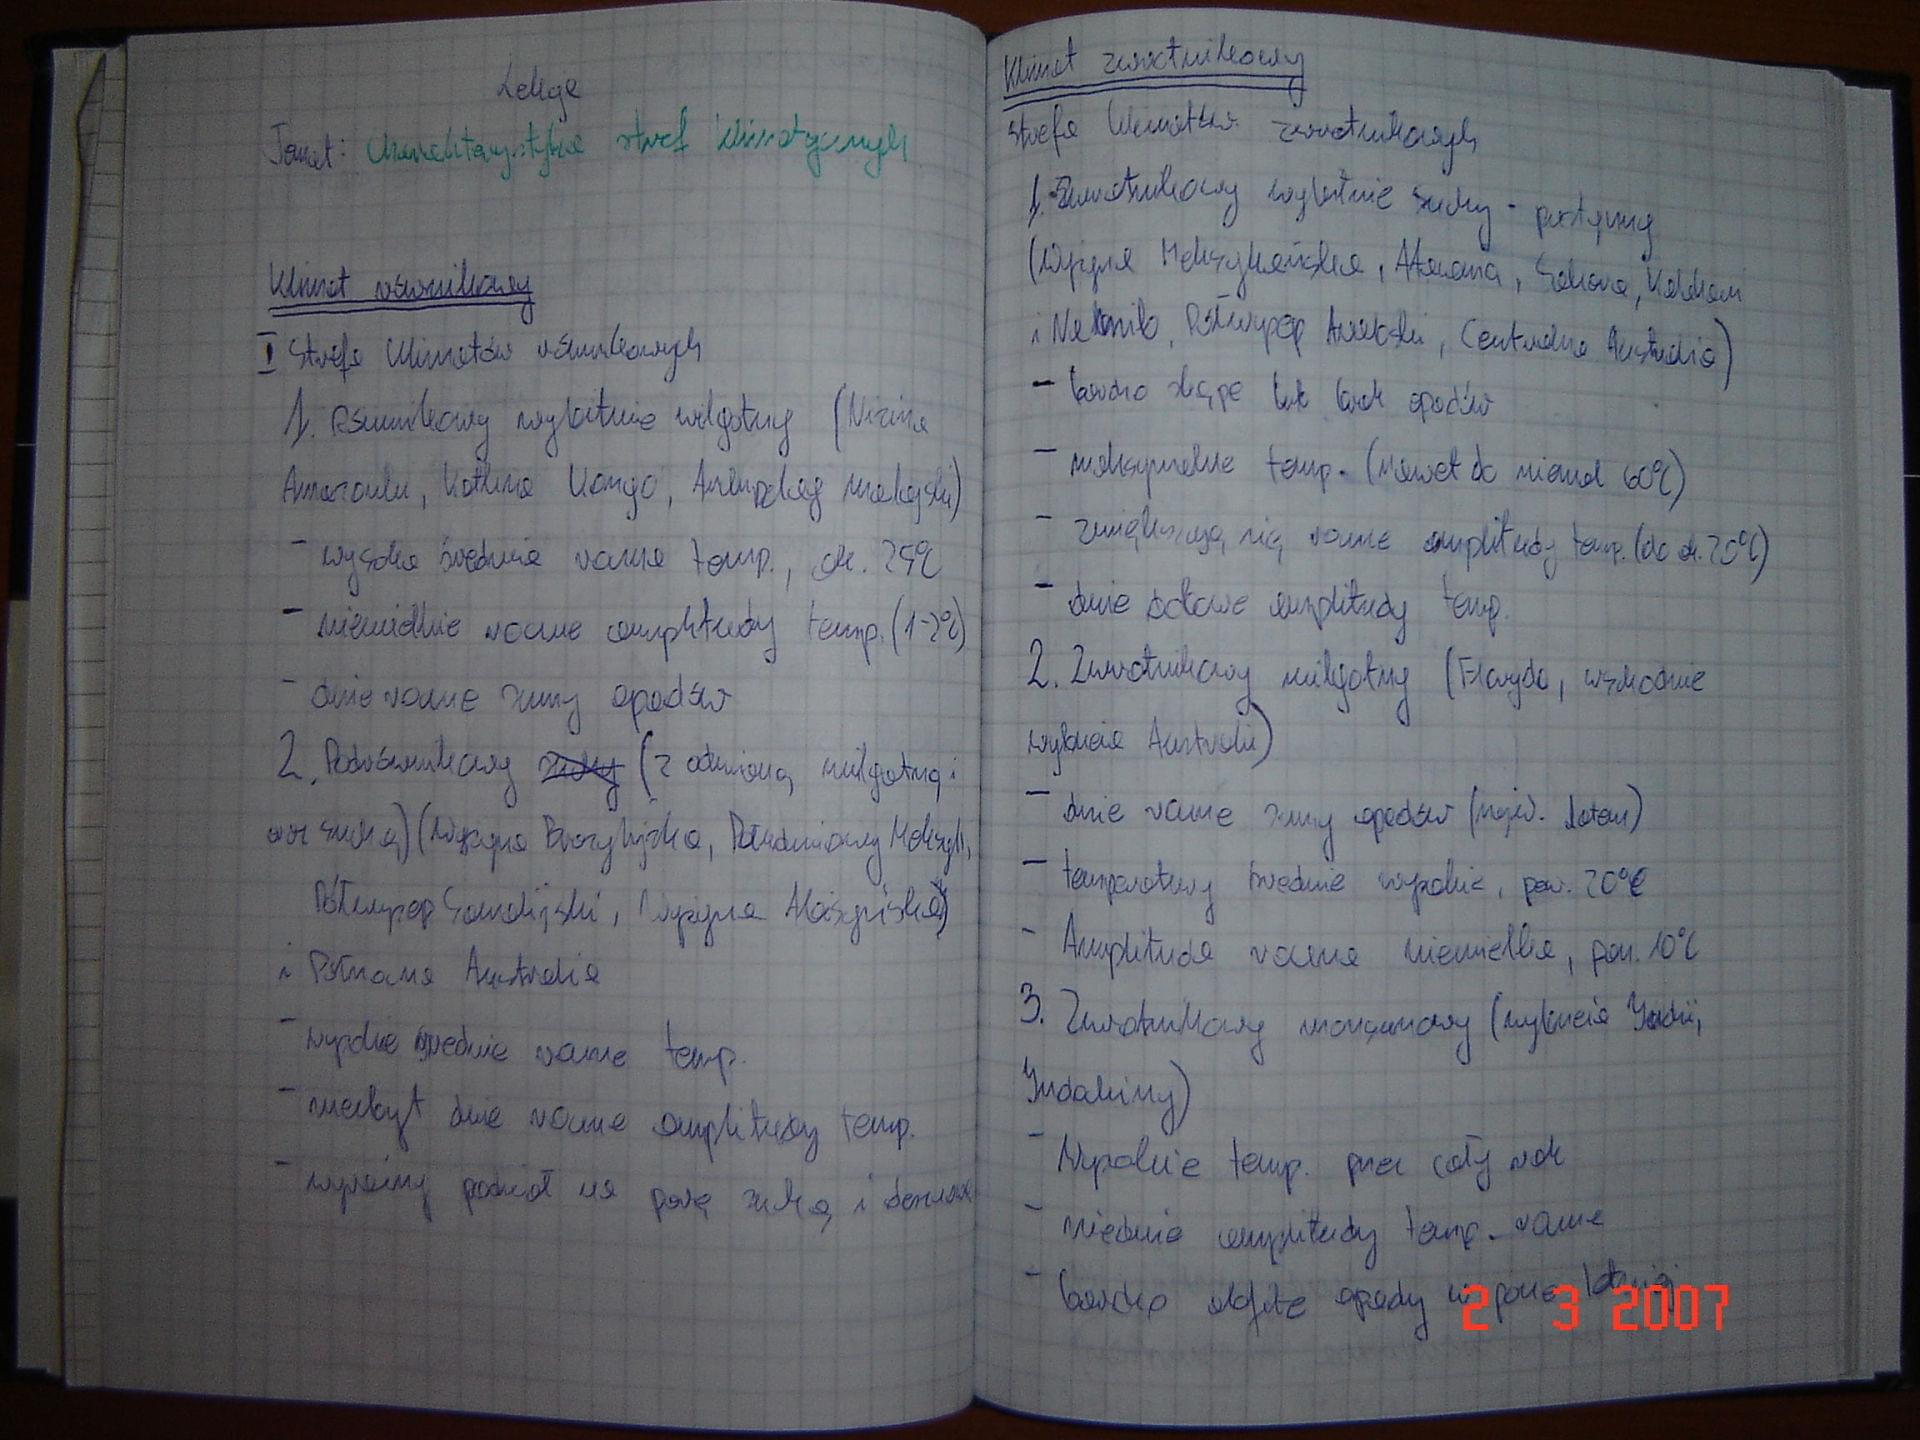 Lekcja
Temat: Charakterystyka stref klimatycznych
Klimat równikowy
I Strefa klimatów równikowych
1. Równikowy wybitnie wilgotny (Nizina
Amazonki, Kotlina Konga, Archipelag Malajski)
- wysoka średnia roczna temp., ok. 25°C
- niewielkie roczne amplitudy temp. (1-2°C)
- duże roczne sumy opadów
2. Podrównikowy suchy (z odmianą wilgotną i
oraz suchą) (Wyżyna Brazylijska, Południowy Meksyk,
Półwysep Somalijski, Wyżyna Abisyńska)
i Północna Australia
- wysokie średnie roczne temp.
- niezbyt duże roczne amplitudy temp.
- wyraźny podział na porę suchą i deszczową
Klimat zwrotnikowy
Strefa klimatów zwrotnikowych
1. Zwrotnikowy wybitnie suchy - pustynny
(Wyżyna Meksykańska, Atacama, Sahara, Kalahari
i Namib, Półwysep Arabski, Centralna Australia)
- bardzo skąpe lub brak opadów
- maksymalne temp. (nawet do niemal 60°C)
- zwiększają się roczne amplitudy temp. (do ok. 20°C)
- duże dobowe amplitudy temp.
2. Zwrotnikowy wilgotny (Floryda, wschodnie
wybrzeże Australii)
- duże roczne sumy opadów (najw. latem)
- temperatury średnie wysokie, pow. 20°C
- Amplituda roczna niewielka, pon. 10°C
3. Zwrotnikowy monsunowy (wybrzeża Indii,
Indochiny)
- Wysokie temp. przez cały rok
- nieduże amplitudy temp. roczne
- bardzo obfite opady w porze letniej
2 3 2007